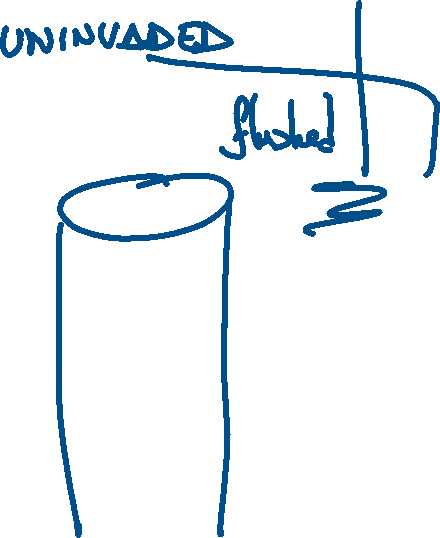 UNINVADED
flushed